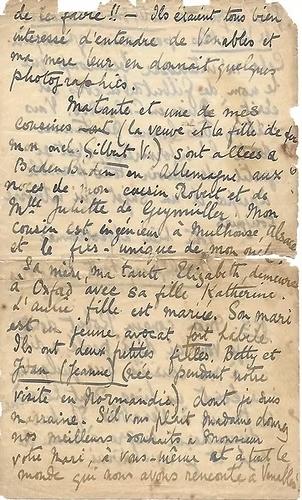 de le faire !! — Ils étaient tous bien
interessé d'entendre de Venables et
ma mère leur en donnait quelques
photographies.
Ma tante et une de mes
cousines (la veuve et la fille de
mon oncle Gilbert V.) sont allées à
Baden Baden en Allemagne aux
noces de mon cousin Robert et de
Mlle Juliette de Guymuller. Mon
cousin est ingénieur à Mulhouse Alsace
et le fils unique de mon oncle
Sa mère, ma tante Elizabeth, demeure
à Oxford avec sa fille Katherine.
L'autre fille est mariée. Son mari
est un jeune avocat fort habile
Ils ont deux petites filles, Betty et
Joan (Jeanne) (née pendant notre
visite en Normandie) dont je suis
marraine. S'il vous plait Madame donnez
nos meilleurs souhaits à Monsieur
votre Mari, à vous-même et à tout le
monde qui nous avons rencontré à Venables